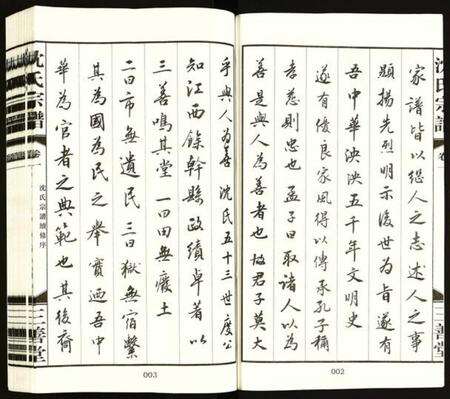 沈氏宗譜
卷
家譜皆以繼人之志述人之事
顯揚先烈明示後世為旨遂有
吾中華泱泱五千年文明史
遂有優良家風得以傳承孔子稱
孝慈則忠也孟子曰取諸人以為
善是與人為善者也故君子莫大
002
乎與人為善沈氏五十三世度公
知江西餘幹縣政績卓著以
三善鳴其堂一曰田無廢土
二曰市無遺民三曰獄無宿繫
其為國為民之舉實迺吾中
華為官者之典範也其後裔
003
沈氏宗譜
卷一
沈氏宗譜續修序
三善堂
三善堂